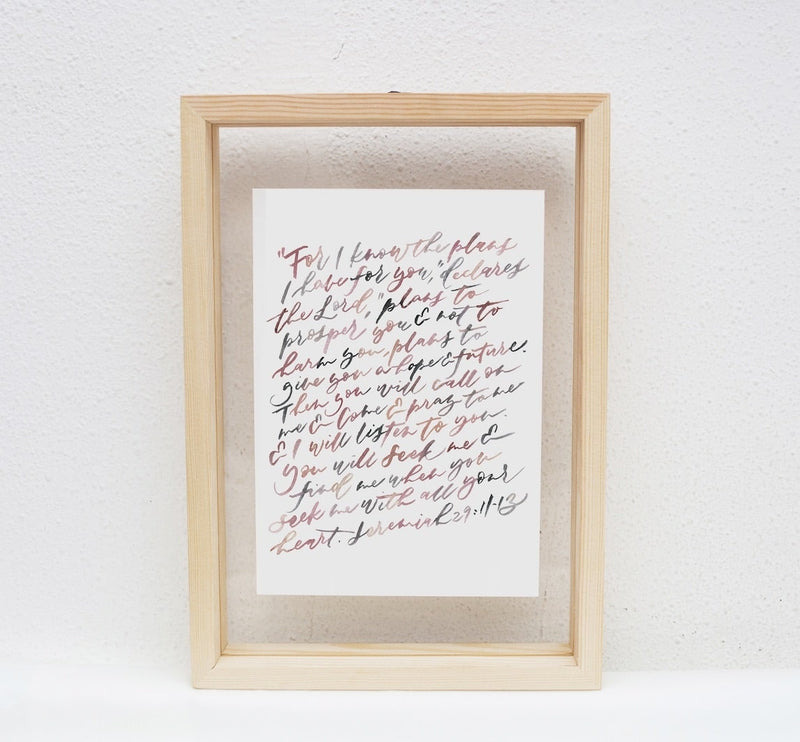 "For I know the plans
I have for you," declares
the Lord, "plans to
prosper you & not to
harm you, plans to
give you a hope & future.
Then you will call on
me & come & pray to me
& I will listen to you.
You will seek me &
find me when you
seek me with all your
heart. Jeremiah 29:11-13